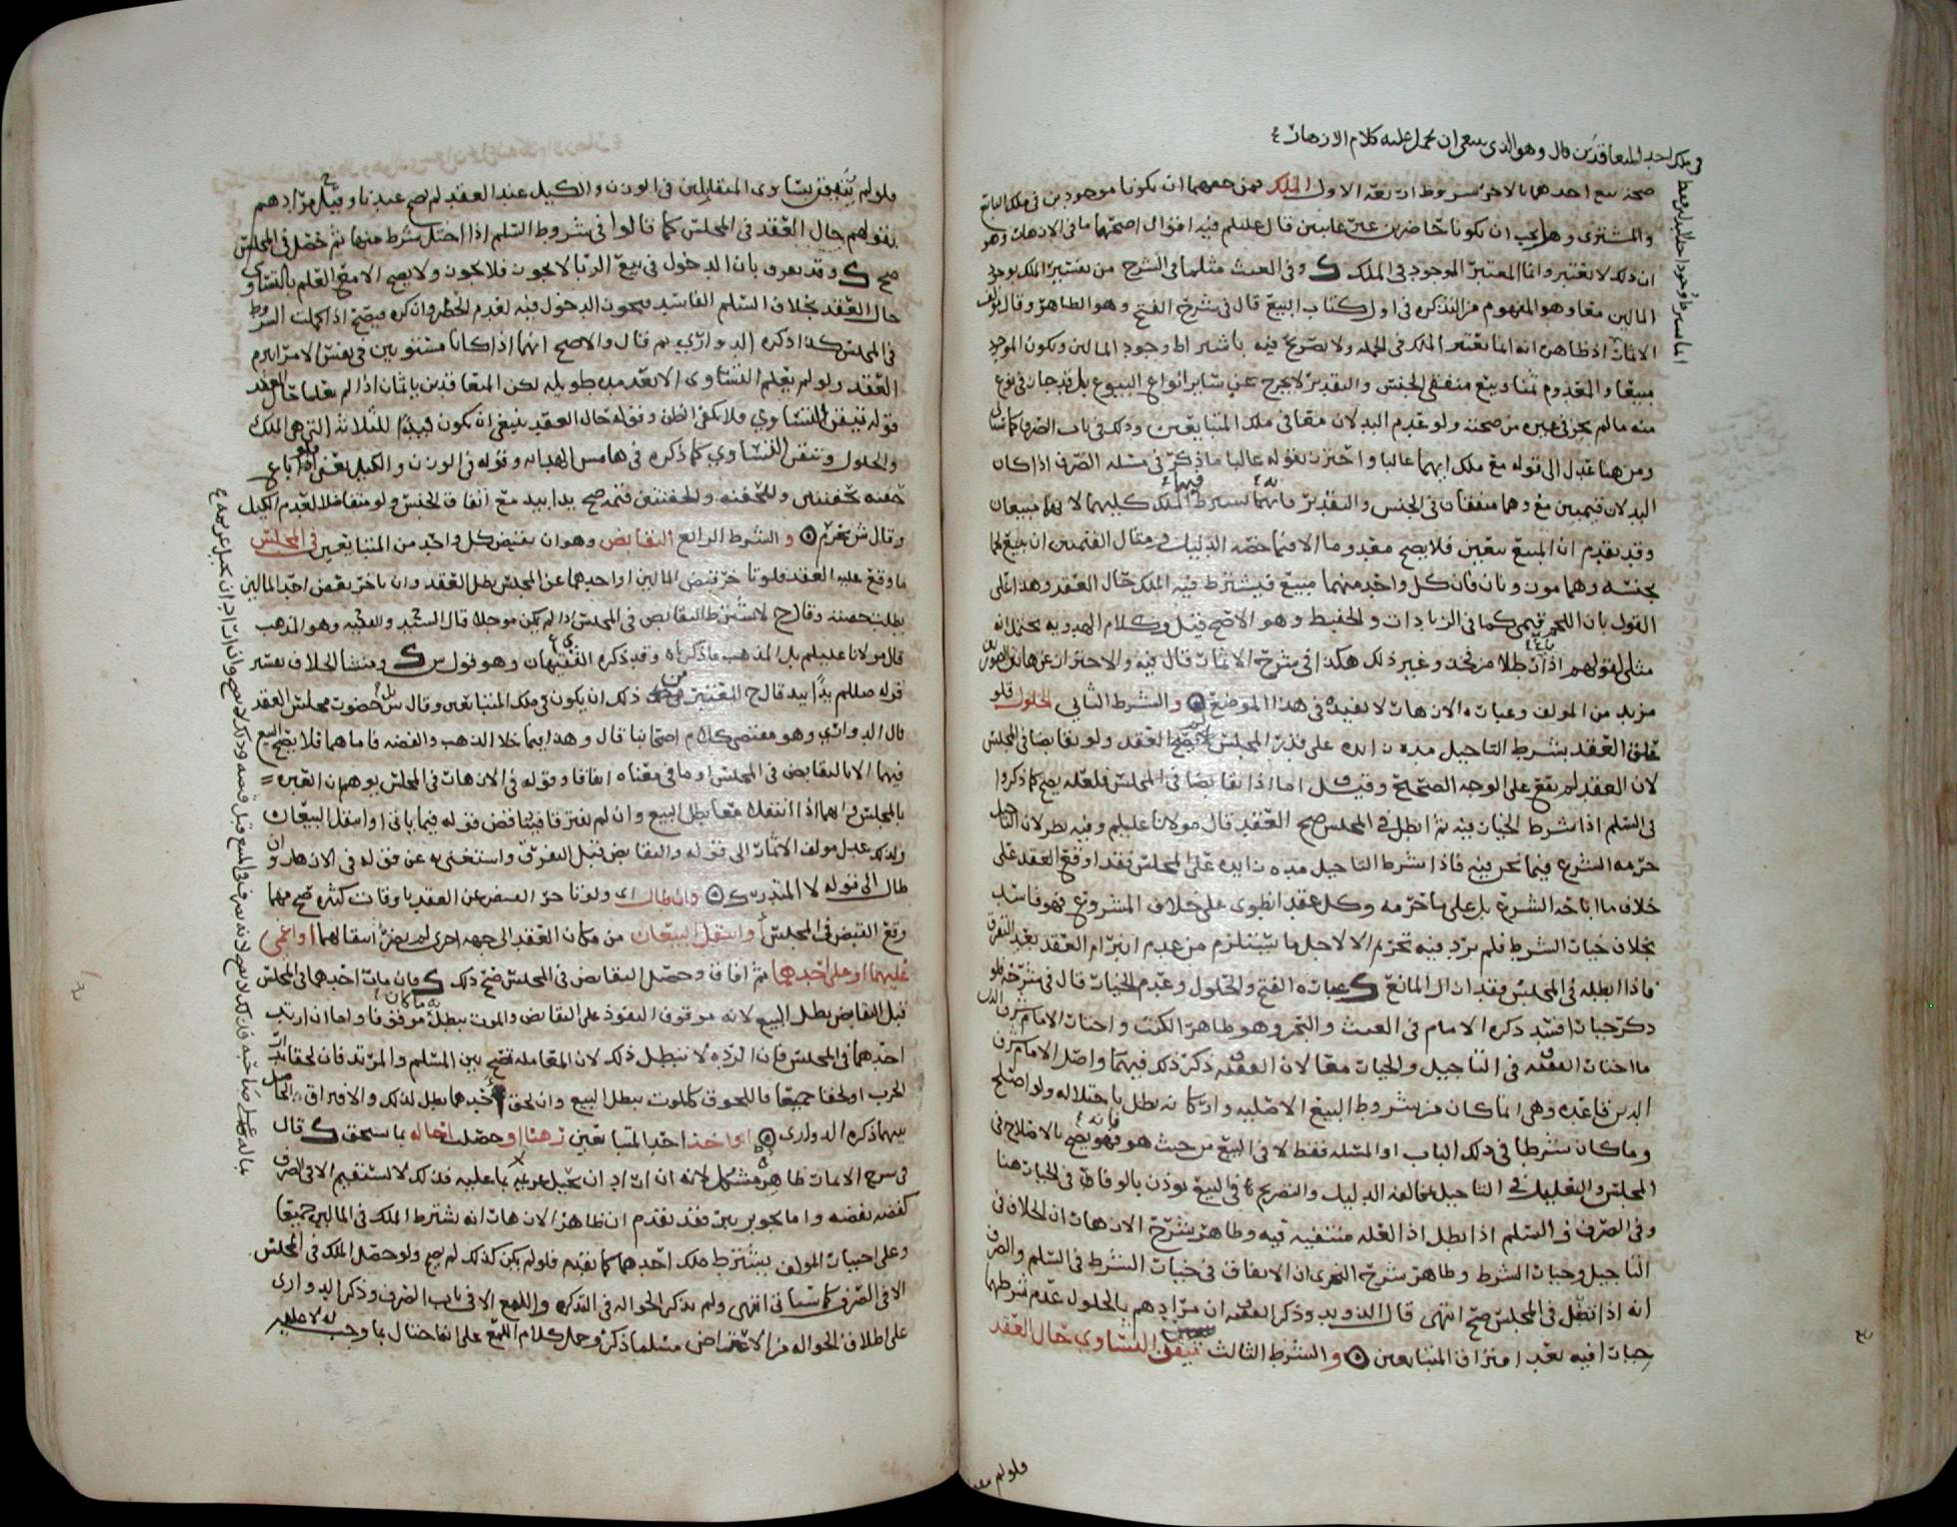 في ملك احد المتعاقدين قال وهو الذي ينبغي ان يحمل عليه كلام الازهار
صحة بيع احدهما بالاخر شروط اربعة الاول الملك فمن حقهما ان يكونا موجودين في ملك البائع
والمشتري وهل يجب ان يكونا حاضرين غير غايبين قال عليلم فيه اقوال اصحها ما في الازهار وهو
ان ذلك لا يعتبر وانما المعتبر الموجود في الملك وفي الغيث مثلما في الشرح من تفسير الملك بوجود
المالين معا وهو المفهوم من التذكرة في اول كتاب البيع قال في شرح الفتح وهو الظاهر وقال مولف
الاثمار اذ ظاهره انه انما يعتبر الملك في الجملة ولا تصريح فيه باشتراط وجود المالين ويكون الموجود
مبيعا والمعدوم ثمنا وبيع متفقي الجنس والتقدير لا يخرج عن ساير انواع البيوع بل قد جاز في نوع
منه ما لم يجز في غيره من صحته ولو عدم البدلان معا في ملك المتبايعين وذلك في باب الصرف كما سياتي
ومن هنا عدل الى قوله مع ملك ايهما غالبا واحترز بقوله غالبا ما ذكر في مسئلة الصرف اذا كان
البدلان قيميين مع وهما متفقان في الجنس والتقدير فانهما يشترط الملك فيهما كليهما لانهما مبيعان
وقد تقدم ان المبيع يتعين فلا يصح معدوما الا فيما خصه الدليل ومثال القيميين ان يبيع لحما
بجنسه وهما موزونان فان كل واحد منهما مبيع فيشترط فيه الملك حال العقد وهذا على
القول بان اللحم قيمي كما في الزيادات والحفيظ وهو الاصح قيل وكلام الهدوية يحتمل انه
مثلي لقولهم اذا باع رطلا من لحم وغير ذلك هكذا في شرح الاثمار قال فيه والاحتراز عن هاتين الصورتين
مزيد من المولف وعبارة الازهار لا تفيده في هذا الموضع والشرط الثاني الحلول فلو
علق العقد بشرط التاجيل مدة زايدة على قدر المجلس لم يصح العقد ولو تقابضا في المجلس
لان العقد لم يقع على الوجه الصحيح وقيل اما اذا تقابضا في المجلس فلعله يصح كما ذكروا
في السلم اذا شرط الخيار فيه ثم ابطل في المجلس صح العقد قال مولانا عليلم وفيه نظر لان التاجيل
حرمه الشرع فيما نحن فيه فاذا شرط التاجيل مدة زايدة على المجلس فقد اوقع العقد على
خلاف ما اباحه الشرع بل على ما حرمه وكل عقد انطوى على خلاف المشروع فهو فاسد
بخلاف خيار الشرط فلم يرد فيه تحريم الا لاجل ما يستلزم من عدم انبرام العقد بعد التفرق
فاذا ابطله في المجلس فقد زال المانع وعبارة الفتح والحلول وعدم الخيار قال في شرحه فلو
ذكر خيار افسد ذكره الامام في الغيث والبحر وهو ظاهر الكتب واختار الامام شرف الدين
ما اختار الفقيه في التاجيل والخيار معا لان الفقيه ذكر ذلك فيهما واصل الامام شرف
الدين قاعدة وهي انما كان من شروط البيع الاصلية واركانه بطل باختلاله ولو اصلح
وما كان شرطا في ذلك الباب او المسئلة فقط لا في البيع من حيث هو فانه يصح بالاصلاح في
المجلس والتعليل في التاجيل بمخالفة الدليل والتصريح في البيع يوذن بالوفاق في الخيار هنا
وفي الصرف في السلم اذا بطل اذ العلة منتفية فيه وظاهر شرح الازهار ان الخلاف في
التاجيل وخيار الشرط وظاهر شرح النجري ان الاتفاق في خيار الشرط في السلم والصرف
انه اذا بطل في المجلس صح انتهى قال الذويد وذكر الفقيه ان مرادهم بالحلول عدم شرطهما
خيارا فيه بعد افتراق المتبايعين والشرط الثالث تيقن التساوي حال العقد
فلو لم يتيقن تساوي المتقابلين في الوزن والكيل عند العقد لم يصح عندنا وقيل مرادهم
بقولهم حال العقد في المجلس كما قالوا في شروط السلم اذا اختل شرط منها ثم حصل في المجلس
صح وقد يفرق بان الدخول في بيع الربا لا يجوز فلا يجوز ولا يصح الا مع العلم بالتساوي
حال العقد بخلاف السلم الفاسد فيجوز الدخول فيه لعدم الحظر وان كره فيصح اذا كملت الشروط
في المجلس كذا ذكره الدواري ثم قال والاصح انهما اذا كانا مستويين في نفس الامر انبرم
العقد ولو لم يعلم التساوي الا بعد مدة طويلة لكن المتعاقدين ياثمان اذا لم يعلما حال العقد
قوله تيقن التساوي فلا يكفي الظن وقوله حال العقد ينبغي ان يكون قيدا للثلاثة التي هي الملك
والحلول وتيقن التساوي كما ذكره في هامش الهداية وقوله في الوزن والكيل يعني فلو باع
حفنة بحفنتين وللحفنة والحفنتين قيمة صح يدا بيد مع اتفاق الجنس ولو متفاضلا لعدم الكيل
وقال ش يحرم والشرط الرابع التقابض وهو ان يقبض كل واحد من المتبايعين في المجلس
ما وقع عليه العقد فلو تاخر قبض المالين او احدهما عن المجلس بطل العقد وان تاخر بعض احد المالين
بطلت حصته وقال ح لا يشترط التقابض في المجلس اذا لم يكن موجلا قال السيد والفقيه وهو المذهب
قال مولانا عليلم بل المذهب ما ذكرناه وقد ذكره الفقيهان وهو قول ش ومنشا الخلاف تفسير
قوله صللم يدا بيد قال ح المعتبر من ذلك ان يكون في ملك المتبايعين وقال ش بل حضور مجلس العقد
قال الدواري وهو مقتضى كلام اصحابنا قال وهذا فيما خلا الذهب والفضة فاما هما فلا يصح البيع
فيهما الا بالتقابض في المجلس او ما في معناه اتفاقا وقوله في الازهار في المجلس يوهم ان العبرة
بالمجلس وانهما اذا انتقلا معا بطل البيع وان لم يفترقا فيناقض قوله فيما ياتي او انتقل البيعان
ولذلك عدل مولف الاثمار الى قوله والتقابض قبل التفرق واستغنى به عن قوله في الازهار وان
طال الى قوله لا المتدرك وان طال اي ولو تاخر القبض عن العقد باوقات كثيرة صح مهما
وقع القبض في المجلس او انتقل البيعان من مكان العقد الى جهة اخرى لم يضر انتقالهما او اغمي
عليهما او على احدهما ثم افاق وحصل التقابض في المجلس صح ذلك فان مات احدهما في المجلس
قبل التقابض بطل البيع لانه موقوف النفوذ على التقابض والموت يبطل به ما كان موقوفا واما ان ارتد
احدهما في المجلس فان الردة لا تبطل ذلك لان المعاملة تصح بين المسلم والمرتد فان لحقا بدار
الحرب او لحقا جميعا فاللحوق كالموت يبطل البيع وان لحق احدهما بطل لذلك والافتراق الحاصل
بينهما ذكره الدواري او اخذ احد المتبايعين رهنا او حصلت احاله بما يستحق قال
في شرح الاثمار ظاهره مشكل لانه ان اراد ان يحيل غريمه بما عليه فذلك لا يستقيم الا في الصرف
كفضة بفضة واما نحو بر ببر فقد تقدم ان ظاهر الازهار انه يشترط الملك في المالين جميعا
وعلى اختيار المولف يشترط ملك احدهما كما تقدم فلو لم يكن كذلك لم يصح ولو حصل الملك في المجلس
الا في الصرف كما سياتي انتهى ولم يذكر الحوالة في التذكرة واللمع الا في باب الصرف وذكر الدواري
على اطلاق الحوالة من الاعتراض مثلما ذكر وحمل كلام اللمع على انه احتال بما وجب له لا عليه
فلو لم